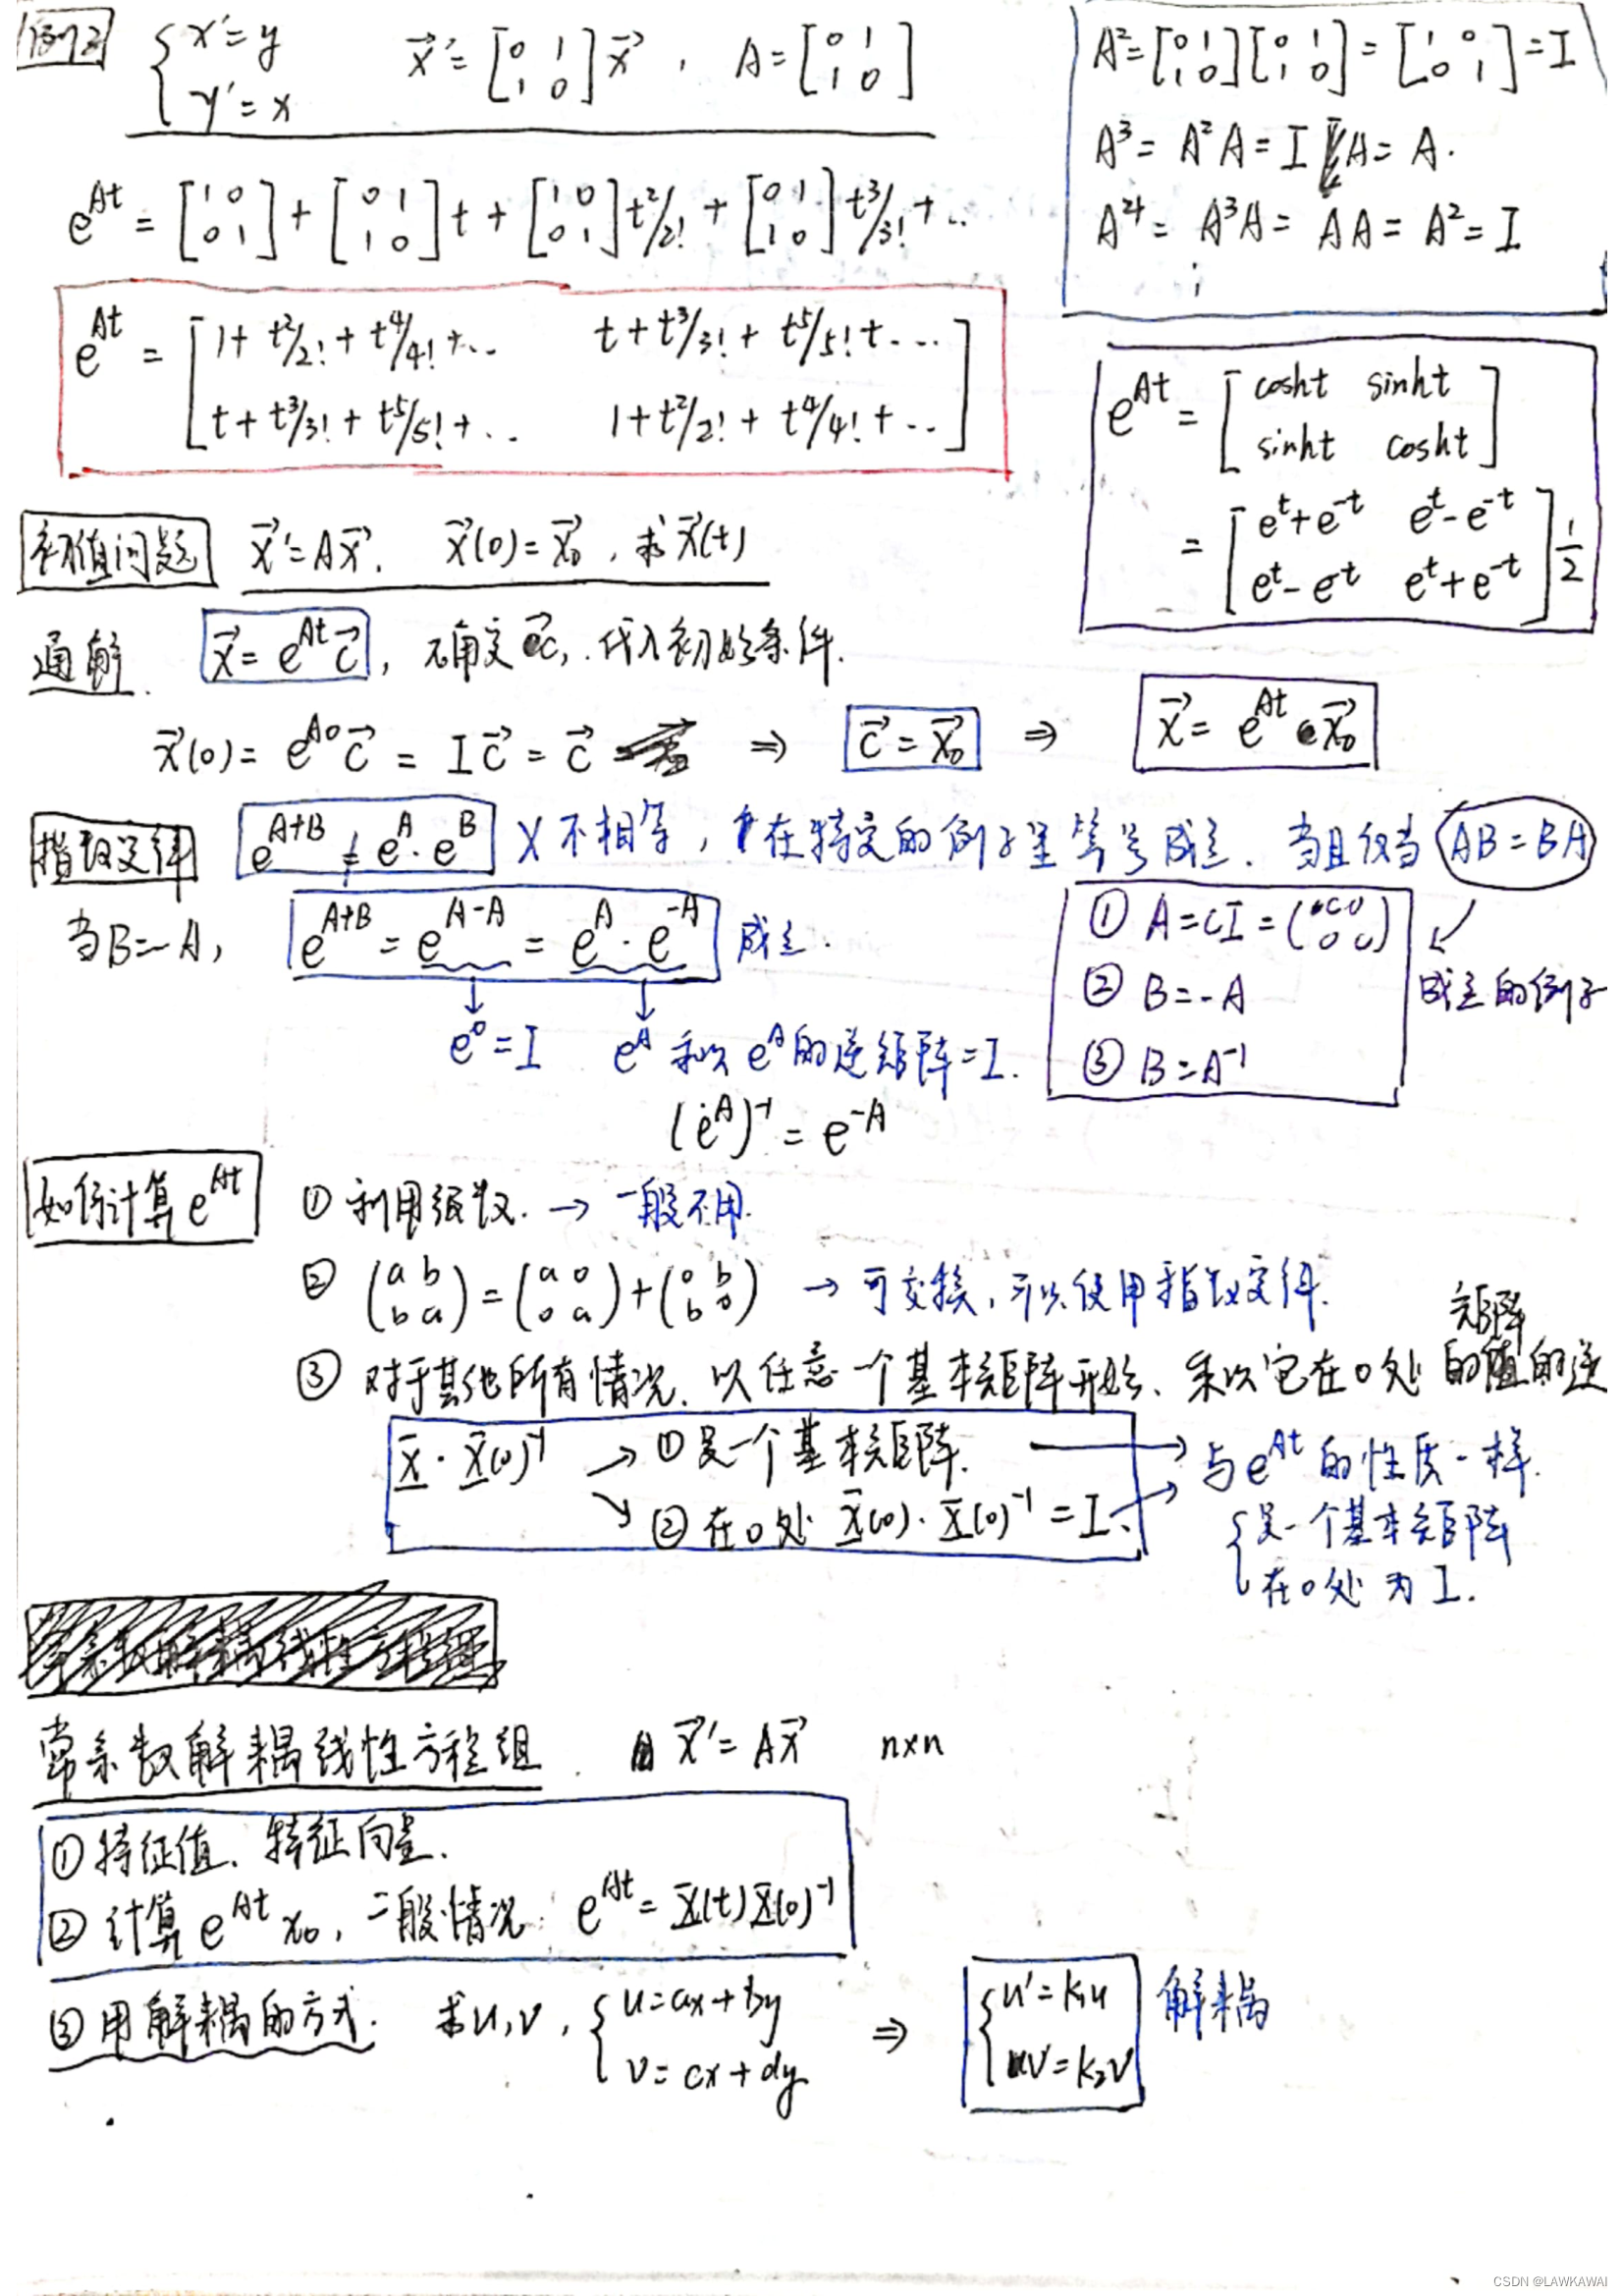 例2 { x' = y   y' = x   x⃗' = [0 1; 1 0] x⃗ , A = [0 1; 1 0]
A² = [0 1; 1 0][0 1; 1 0] = [1 0; 0 1] = I
A³ = A²A = I A = A.
A⁴ = A³A = AA = A² = I
e^{At} = [1 0; 0 1] + [0 1; 1 0] t + [1 0; 0 1] t²/2! + [0 1; 1 0] t³/3! + ..
e^{At} = [1 + t²/2! + t⁴/4! + ..   t + t³/3! + t⁵/5! + ...; t + t³/3! + t⁵/5! + ..   1 + t²/2! + t⁴/4! + ..]
e^{At} = [cosht sinht; sinht cosht]
= [e^t + e^{-t}   e^t - e^{-t}; e^t - e^{-t}   e^t + e^{-t}] 1/2
初值问题 x⃗' = Ax⃗. x⃗(0) = x⃗₀ , 求 x⃗(t)
通解. x⃗ = e^{At} c⃗ , 不确定 c⃗, 代入初始条件.
x⃗(0) = e^{A0} c⃗ = I c⃗ = c⃗ ⇒ c⃗ = x⃗₀ ⇒ x⃗ = e^{At} x⃗₀
指数定律 e^{A+B} ≠ e^A · e^B X 不相等, 在特定的例子里等号成立. 当且仅当 AB = BA
当B = -A, e^{A+B} = e^{A-A} = e^A · e^{-A} 成立.
↓ e⁰ = I ↓ e^A 和以 e^A 的逆矩阵 = I.
(e^A)^{-1} = e^{-A}
① A = cI = (c 0; 0 c)
② B = -A
③ B = A^{-1}
成立的例子
如何计算 e^{At} ① 利用级数. → 一般不用.
② (a b; b a) = (a 0; 0 a) + (0 b; b 0) → 可交换, 可以使用指数定律.
③ 对于其他所有情况. 以任意一个基本矩阵开始、乘以它在0处 矩阵 的值的逆
X · X(0)^{-1} → ① 是一个基本矩阵. → 与 e^{At} 的性质一样.
↘ ② 在0处 X(0) · X(0)^{-1} = I.
{ 是一个基本矩阵
在0处 为 I.
常系数解耦线性方程组. x⃗' = Ax⃗ n×n
① 特征值、特征向量.
② 计算 e^{At} x₀ , 一般情况: e^{At} = X(t) X(0)^{-1}
③ 用解耦的方式. 求u,v, { u = ax + by   v = cx + dy ⇒ { u' = k₁u   v' = k₂v 解耦
CSDN @LAWKAWAI